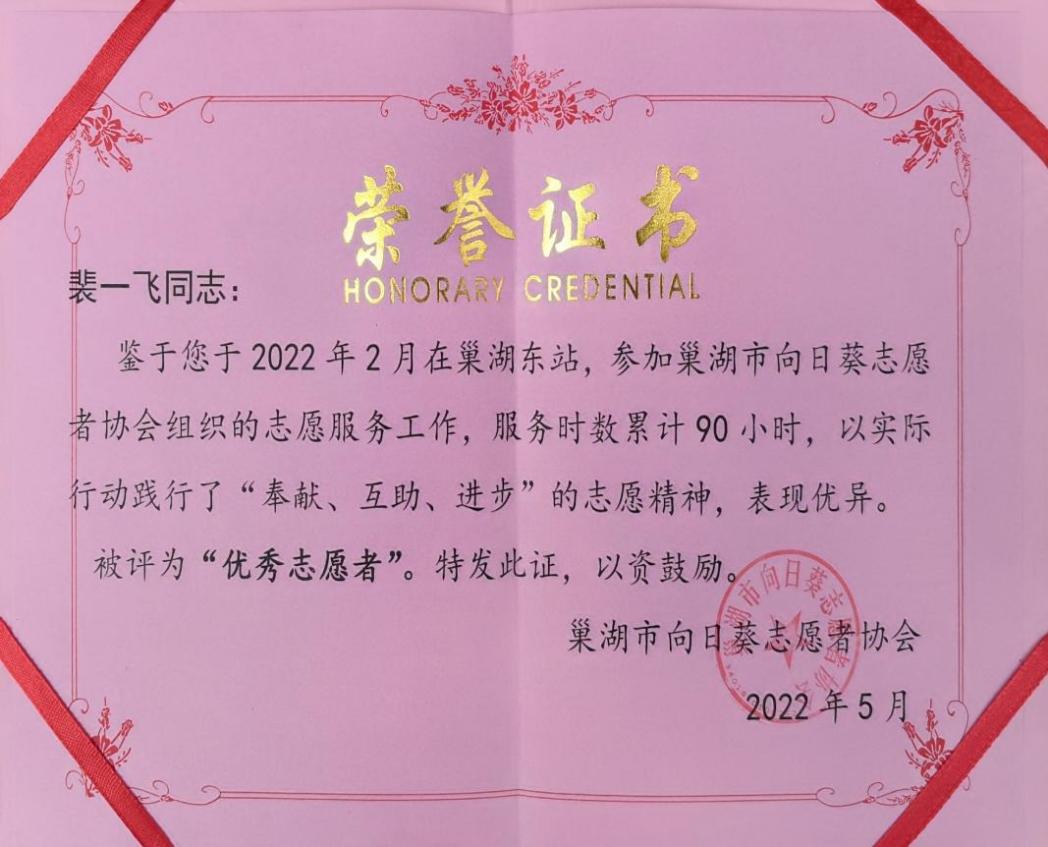 荣誉证书
HONORARY CREDENTIAL
裴一飞同志：
鉴于您于 2022 年 2 月在巢湖东站，参加巢湖市向日葵志愿
者协会组织的志愿服务工作，服务时数累计 90 小时，以实际
行动践行了“奉献、互助、进步”的志愿精神，表现优异。
被评为“优秀志愿者”。特发此证，以资鼓励。
巢湖市向日葵志愿者协会
2022 年 5 月
巢湖市向日葵志愿者协会